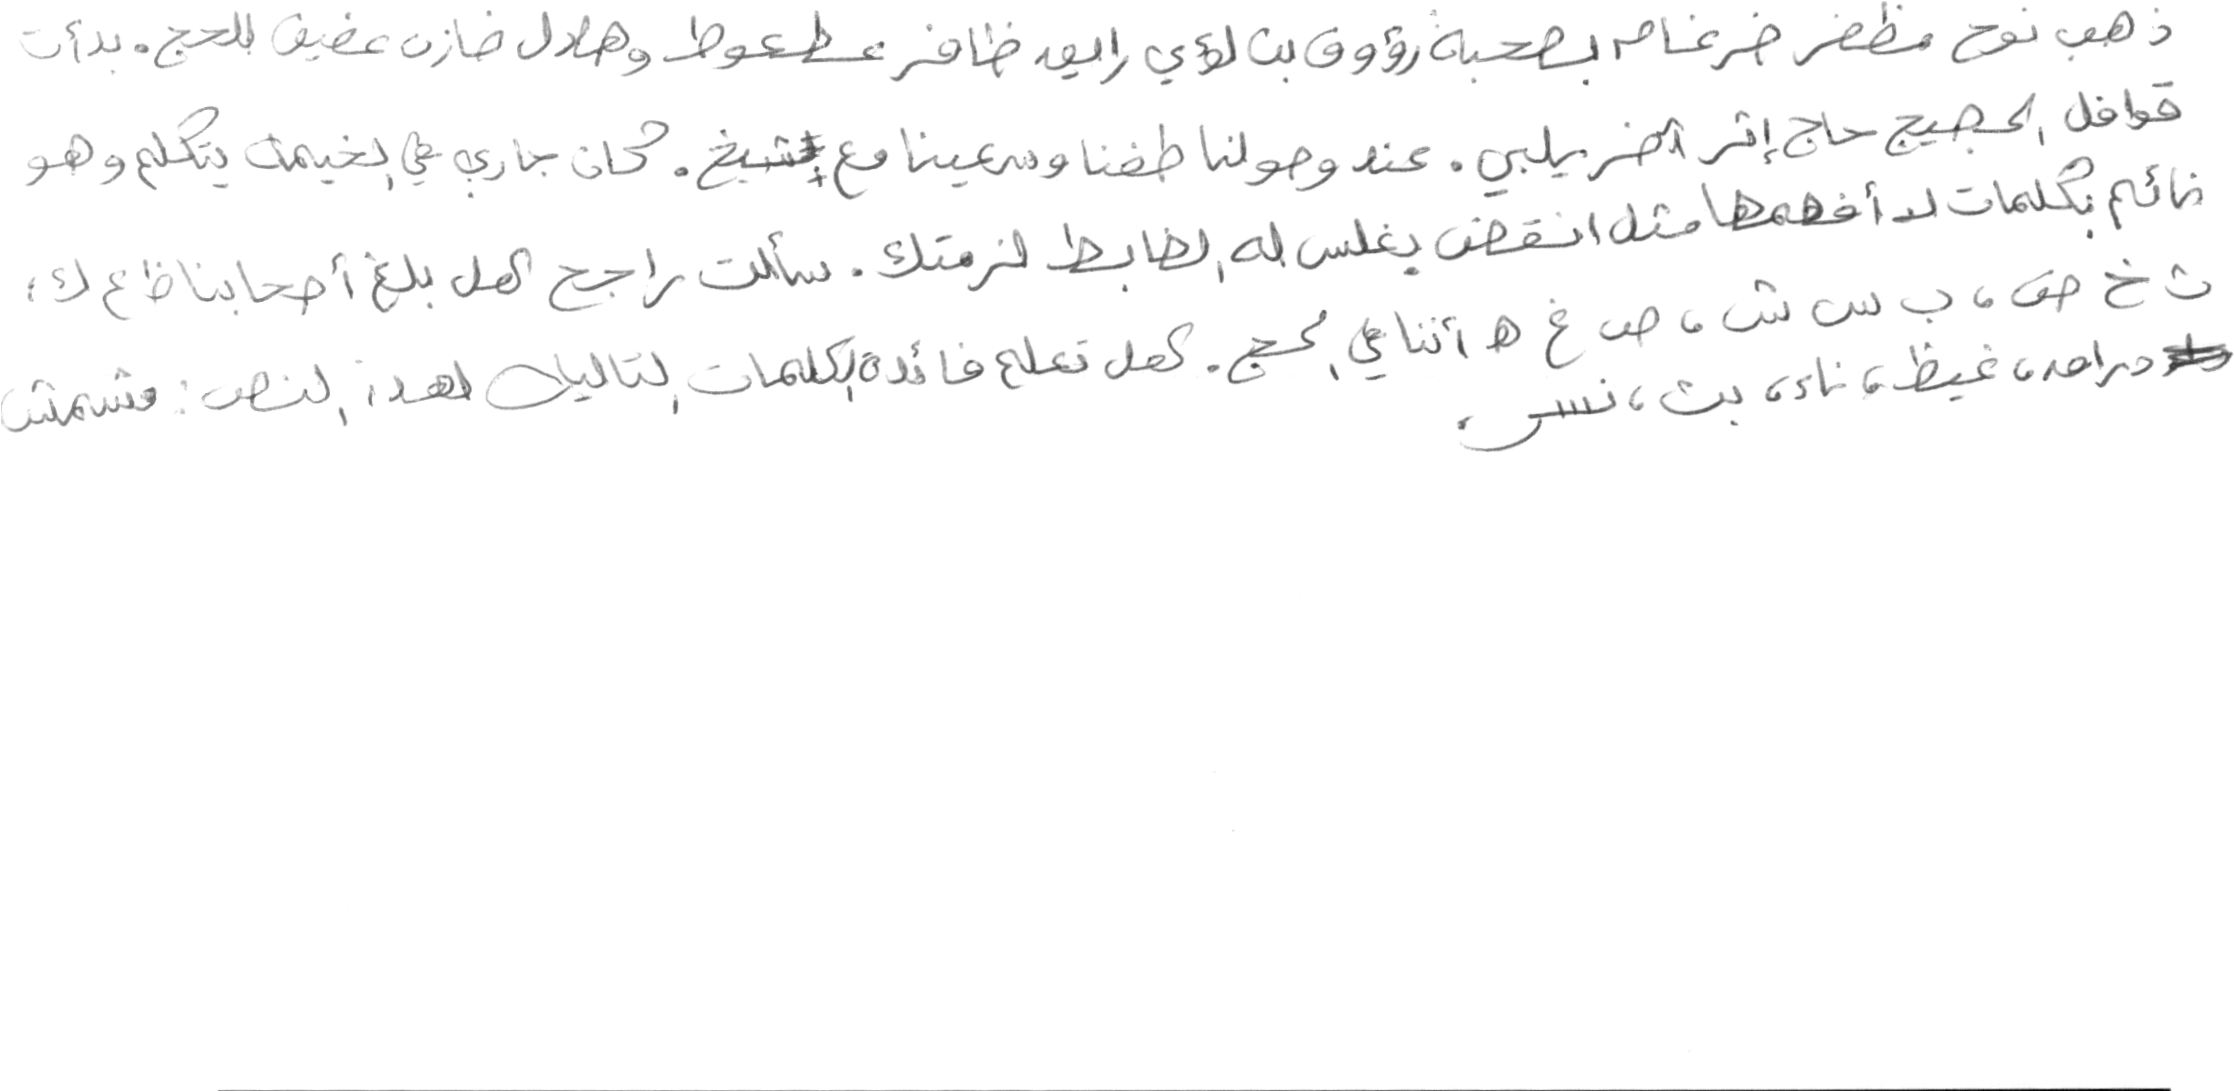 ذهب نوح مظفر ضرغام بصحبة رؤوف بن لؤي رايق ظافر عطعوط وهلال خازن عفيف للحج. بدأت
قوافل الحجيج حاج إثر آخر يلبي. عند وصولنا طفنا وسعينا مع شيخ. كان جاري في الخيمة يتكلم وهو
نائم بكلمات لا أفهمها مثل انقض يغلس له الضابط لزمتك. سألت راجح هل بلغ أصحابنا ظ ع ك،
ث خ ض، ب س ش، ص غ ه أننا في الحج. هل تعلم فائدة الكلمات التالية لهذا النص: مشمش
دراهم، غيظ، ناء، بث، نسر.